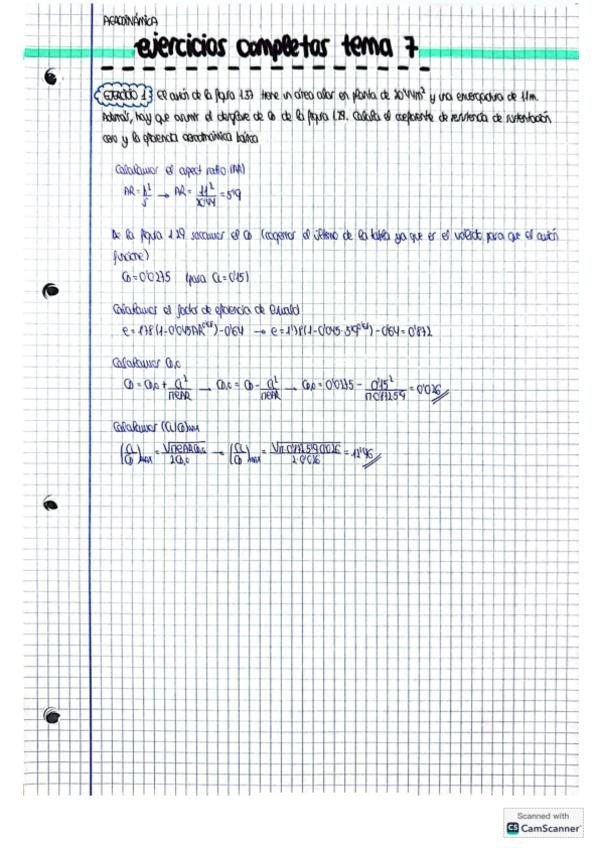 AERODINÁMICA
ejercicios completos tema 7
EJERCICIO 1: El avión de la figura 1.37 tiene un área alar en planta de 20'44m² y una envergadura de 11m.
Además, hay que asumir el desglose de CD de la figura 1.29. Calcula el coeficiente de resistencia de sustentación
cero y la eficiencia aerodinámica
Calculamos el aspect ratio (AR)
AR = b²/S → AR = 11²/20'44 = 5'9
De la figura 1.29 sacamos el CD (cogemos el último de la tabla ya que es el válido para que el avión
funcione)
CD = 0'0275 (para CL = 0'15)
Calculamos el factor de eficiencia de Oswald
e = 1'78(1-0'045AR^0'68)-0'64 → e = 1'78(1-0'045·5'9^0'68)-0'64 = 0'872
Calculamos CD,0
CD = CD,0 + CL²/πeAR → CD,0 = CD - CL²/πeAR → CD,0 = 0'0275 - 0'15²/π·0'872·5'9 = 0'026
Calculamos (CL/CD)max
(CL/CD)max = √πeARCD,0/2CD,0 → (CL/CD)max = √π·0'872·5'9·0'026/2·0'026 = 12'46
Scanned with
CS CamScanner